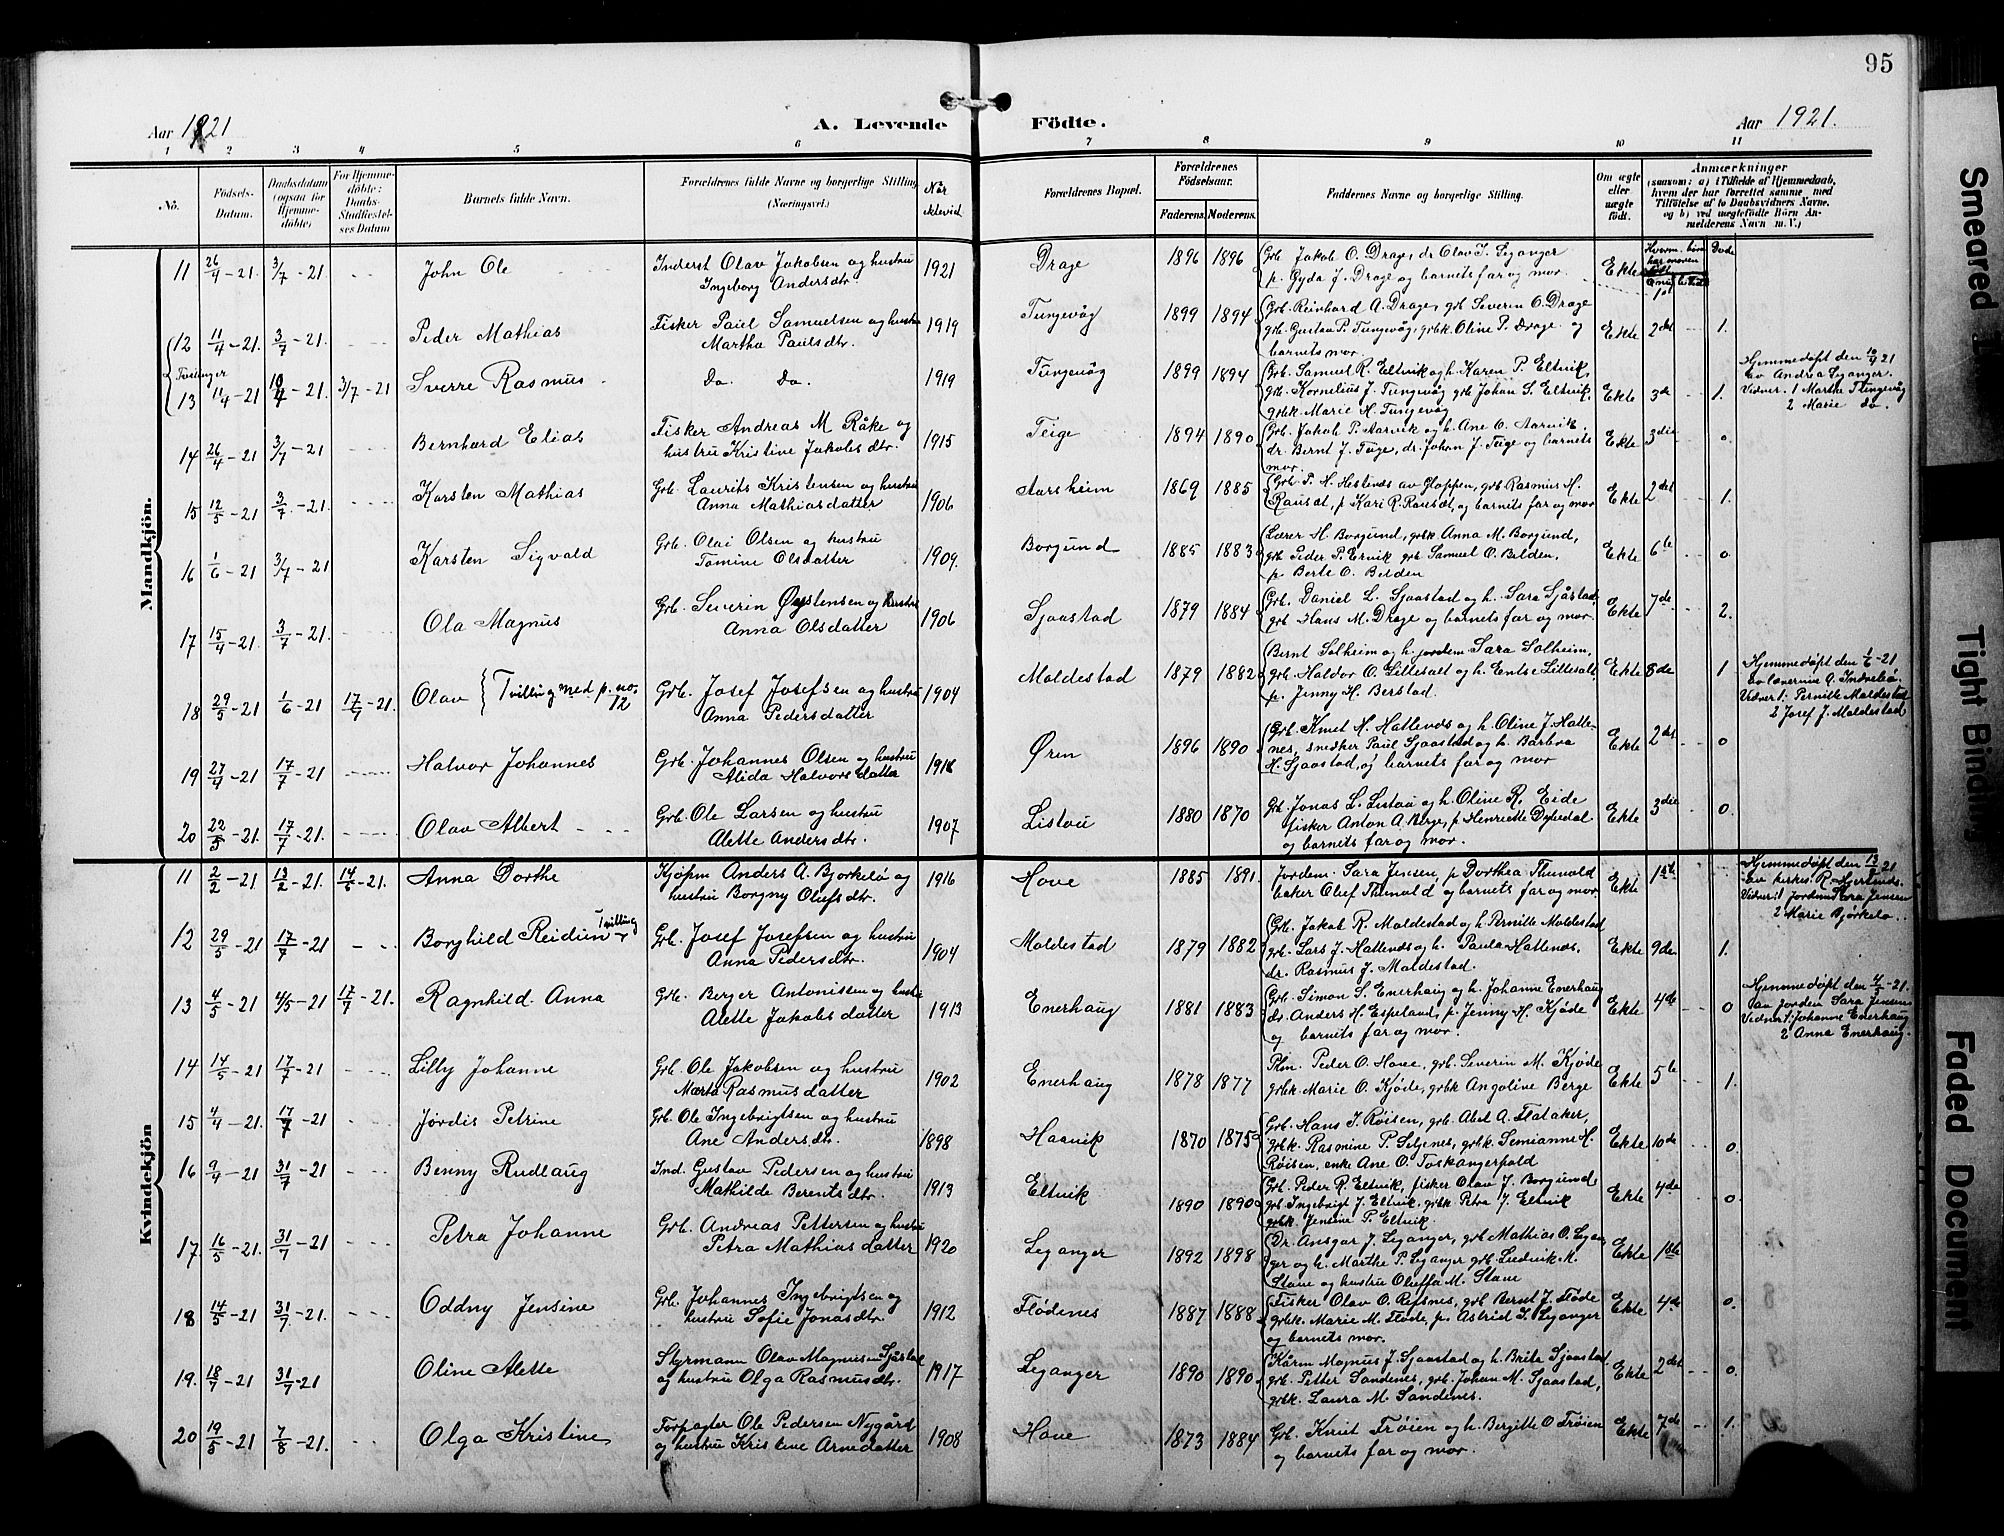 95
Aar 1921
A. Levende Födte.
Aar 1921.
1 2 3 4 5 6 7 8 9 10 11
No. Födsels-Datum. Daabsdatum (ogsaa for Hjemme-döbte) For Hjemme-döbte: Daabs-Stadfæstel-ses Datum Barnets fulde Navn. Forældrenes fulde Navne og borgerlige Stilling (Næringsvei.) Når ektevid. Forældrenes Bopæl. Forældrenes Födselsaar. Faderens. Moderens. Faddernes Navne og borgerlige Stilling. Om ægte eller uægte født. Anmærkninger
(saasom: a) i Tilfælde af Hjemmedaab,
hvem der har forrettet samme med
Tilföielse af to Daabsvidners Navne,
og b) ved uægtefödte Börn An-
melderens Navn m.V.)
Mandkjön.
11 26/4-21. 3/7-21 John Ole Inderst Olav Jakobsen og hustru 1921 Drage 1896 1896 Grb. Jakob O. Drage, dr Olav I. Leganger Ekte
Ingeborg Andersdtr. p. Gyda J. Drage og barnets far og mor.
Hverm. børn har moren født Døde
12 11/4-21. 3/7-21. Peder Mathias Fisker Paul Samuelsen og hustru 1919 Tungevåg 1899 1894 Grb. Reinhard A. Drage, grb Severin O. Drage Ekte 2det 1.
Martha Paulsdtr. grb. Gustav P. Tungevåg, grbk. Oline P. Drage og
barnets mor.
Tvillinger
13 11/4-21 10/4-21. 3/7-21 Sverre Rasmus. Do. Do. 1919 Tungevåg 1899 1894 Grb. Samuel R. Eltvik og h. Karen P. Eltvik, Ekte 3de 1.
grb. Kornelius J. Tungevåg grb Johan S. Eltvik,
grbk. Marie H. Tungevåg
Hjemmedøpt den 10/4 21
av Andrea Leganger.
Vidner. 1 Marthe Tungevåg
2 Marie do.
14 26/4-21 3/7-21 Bernhard Elias Fisker Andreas M Råke og 1915 Teige 1894 1890 Grb. Jakob P. Aarvik og h. Ane O. Aarvik, Ekte 3die 0.
hustru Kristine Jakobsdtr. dr. Bernt J. Teige, dr. Johan J. Teige og barnets
mor.
15 12/5-21. 3/7-21. Karsten Mathias Grb. Laurits Kristensen og hustru 1906 Aarsheim 1869 1885 av Gloppen, grb. Rasmus H. Ekte 2det 1.
Anna Mathiasdatter og barnets far og mor
16 1/6-21 3/7-21 Karsten Sigvald Grb. Olai Olsen og hustru 1909. Borgund 1885 1883 Lærer H. Borgund, grbk Anna M. Borgund, Ekte 6te 0
Tomine Olsdatter grb Peder P. Ervik grb. Samuel O. Belden,
p. Berte O. Belden
17 15/4-21 3/7-21. Ola Magnus Grb. Severin Øystensen og hustru 1906 Sjaastad 1879 1884 Grb. Daniel L. Sjaastad og h. Sara Sjåstad, Ekte 7de 2.
Anna Olsdatter grb Hans M. Drage og barnets far og mor.
18 29/5-21 1/6-21 17/7-21. Olav Tvilling med p. no. 12 Grb. Josef Josefsen og hustru 1904 Maldestad 1879 1882 Bernt Solheim og h. jordem Sara Solheim, Ekte 8de 1
Anna Pedersdatter grb. Haldor O. Lillesalt og h. Entse Lillesalt
p. Jenny H. Berstad.
Hjemmedøpt den 1/6-21
av Severine G. Indrebø.
Vidner 1: Pernille Maldestad
2 Josef J. Maldestad
19 27/4-21 17/7-21 Halvor Johannes Grb. Johannes Olsen og hustru 1918 Øren 1896 1890 Grb. Knut H. Hattenes og h. Oline J. Hatte- Ekte 2det 0
Alida Halvorsdatter nes, snedker Paul Sjaastad og h. Barbra
H. Sjaastad, og barnets far og mor
20 22/5-21. 17/7-21. Olav Albert Grb. Ole Larsen og hustru 1907 Listau 1880 1870 Grb. Jonas L. Listau og h. Oline R. Eide Ekte 3die 0.
Alette Andersdtr. fisker Anton A. Berge, p. Henriette
og barnets far og mor.
Kvindekjön
11 2/2-21 13/2-21. 14/5-21. Anna Dorthe Kjøpm Anders A. Bjørkelo og 1916 Hove 1885 1891. Jordem. Sara Jensen, p. Dorthea Thunold Ekte 1ste
hustru Borgny Olufsdtr. baker Oluf Thunold og barnets far og mor
Hjemmedøpt den 13/2 21
av kirkes. R. Hjertenæs.
Vidner: 1 Jordem Sara Jensen
2 Marie Bjørkelo.
12 29/5-21 17/7-21 Borghild Reidun Tvilling Grb. Josef Josefsen og hustru 1904 Maldestad 1879 1882 Grb. Jakob R. Maldestad og h. Pernille Maldestad Ekte 9de 1.
Anna Pedersdtr. grb. Lars J. Hattenes og h. Paula Hattenes.
dr. Rasmus J. Maldestad.
13 4/5-21 4/5-21 17/7-21. Ragnhild Anna Grb. Berger Antonissen og hustru 1913 Enerhaug 1881 1883 Grb. Simon S. Enerhaug og h. Johanne Enerhaug Ekte 4de 0
Alette Jakobsdatter dr. Anders H. Espeland, p. Jenny H. Kjøde
og barnets far og mor.
Hjemmedøpt den 4/5-21.
av jordem Sara Jensen
Vidner 1: Johanne Enerhaug
2 Anna Enerhaug.
14 14/5-21 17/7-21 Lilly Johanne Grb. Ole Jakobsen og hustru 1902 Enerhaug 1878 1877 Peder O. Hove, grb. Severin M. Kjøde Ekte 5te 1.
Marta Rasmusdatter grbk. Marie O. Kjøde, grbk Angoline Berge
15 4/4-21. 17/7-21 Jørdis Petrine Grb. Ole Ingebrigtsen og hustru 1898 Haavik 1870 1875 Grb. Hans I. Røisen, grb. Abel A. Flataker, Ekte 10de 0.
Ane Andersdtr. grbk. Rasmine P. Seljenes, grbk Semianne H.
Røisen, enke Ane O. Toskangerpold
16 9/4-21 31/7-21 Benny Rudlaug Ind. Gustav Pedersen og hustru 1913 Eltvik 1890 1890 Grb. Peder R. Eltvik, fisker Olav J. Borgund Ekte 4de 0
Mathilde Berentsdtr. grb Ingebrigt J. Eltvik, grbk Petra J. Eltvik
grbk. Jensine P. Eltvik.
17 16/5-21. 31/7-21 Petra Johanne Grb. Andreas Pettersen og hustru 1920 Leganger 1892 1898 Dr. Ansgar J. Leganger, grb Mathias O. Legan- Ekte 1ste
Petra Mathiasdatter ger og h. Marthe P. Leganger grb. Ludvik M.
Stave og hustru Oluffa M. Stave
18 14/5-21 31/7-21. Oddny Jensine Grb. Johannes Ingebrigtsen og 1912 Flødenes 1887 1888 Fisker Olav O. Refsnes, grb Bernt J. Fløde Ekte 4de 0.
hustru Sofie Jonasdtr. grbk. Marie M. Fløde, p. Astrid I. Leganger
og barnets mor.
19. 18/7-21 31/7-21 Oline Alette Styrmann Olav Magnussen Sjåstad 1917 Leganger 1890 1890 Kårm Magnus J. Sjaastad og h. Brita Sjaastad Ekte 2det 0.
og hustru Olga Rasmusdtr. grb. Petter Sandenes, grb. Johan M. Sjaastad,
grbk. Laura M. Sandenes.
20 19/5-21 7/8-21. Olga Kristine Forpagter Ole Pedersen Nygård 1908 Hove 1873 1884 Grb. Knut Trøien og h. Bergitte O Trøien Ekte 7de 1.
og hustru Kristine Arnedatter og barnets far og mor.
Smeared
Tight Binding
Faded Document